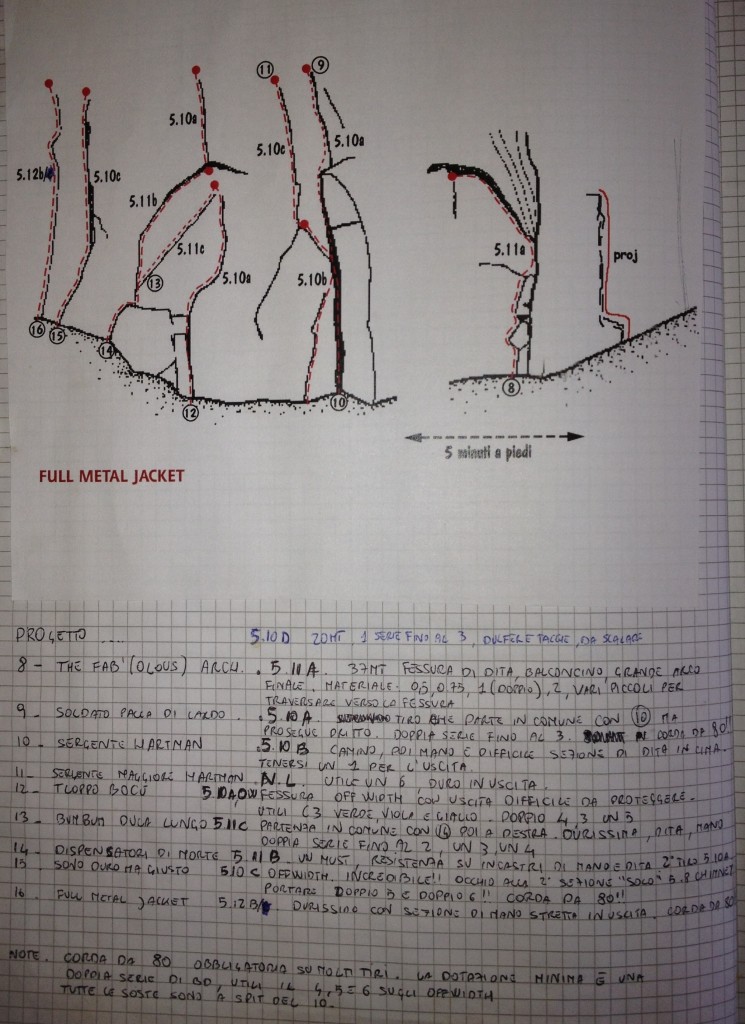 11
9
5.10a
5.10c
5.10a
5.12b/
5.10c
5.11b
5.11c
5.10a
5.10b
5.11a
proj
13
16
15
14
12
10
8
5 minuti a piedi
FULL METAL JACKET
PROGETTO .... 5.10D 20MT, 1 SERIE FINO AL 3, DULFER E TACCHE, DA SCALARE
8 - THE FAB'(OLOUS) ARCH. 5.11A. 37MT FESSURA DI DITA, BALCONCINO, GRANDE ARCO
FINALE. MATERIALE: 0,5, 0.75, 1 (DOPPIO), 2, VARI PICCOLI PER
TRAVERSARE VERSO LA FESSURA
9 - SOLDATO PALLA DI LARDO. 5.10A TIRO CHE PARTE IN COMUNE CON 10 MA
PROSEGUE DRITTO. DOPPIA SERIE FINO AL 3. CORDA DA 80!!
10 - SERGENTE HARTMAN 5.10B CAMINO, POI MANO E DIFFICILE SEZIONE DI DITA IN CIMA.
TENERSI UN 1 PER L'USCITA.
11 - SERGENTE MAGGIORE HARTMAN N.L. UTILE UN 6, DURO IN USCITA.
12 - TROPPO BOCÙ 5.10A, OW FESSURA OFFWIDTH CON USCITA DIFFICILE DA PROTEGGERE.
UTILI C3 VERDE, VIOLA E GIALLO. DOPPIO 4, 3 UN 5
13 - BUMBUM DULA LUNGO 5.11C PARTENZA IN COMUNE CON 14 POI A DESTRA. DURISSIMA, DITA, MANO
DOPPIA SERIE FINO AL 2, UN 3, UN 4
14 - DISPENSATORI DI MORTE 5.11B UN MUST, RESISTENZA SU INCASTRI DI MANO E DITA 2° TIRO 5.10A
15 - SONO DURO MA GIUSTO 5.10C OFFWIDTH. INCREDIBILE!! OCCHIO ALLA 2° SEZIONE "SOLO" 5.8 CHIMNEY
PORTARE DOPPIO 5 E DOPPIO 6!! CORDA DA 80!!
16 - FULL METAL JACKET 5.12B/ DURISSIMO CON SEZIONE DI MANO STRETTA IN USCITA. CORDA DA 80
NOTE. CORDA DA 80 OBBLIGATORIA SU MOLTI TIRI. LA DOTAZIONE MINIMA È UNA
DOPPIA SERIE DI BD, UTILI IL 4, 5 E 6 SUGLI OFFWIDTH
TUTTE LE SOSTE SONO A SPIT DEL 10.